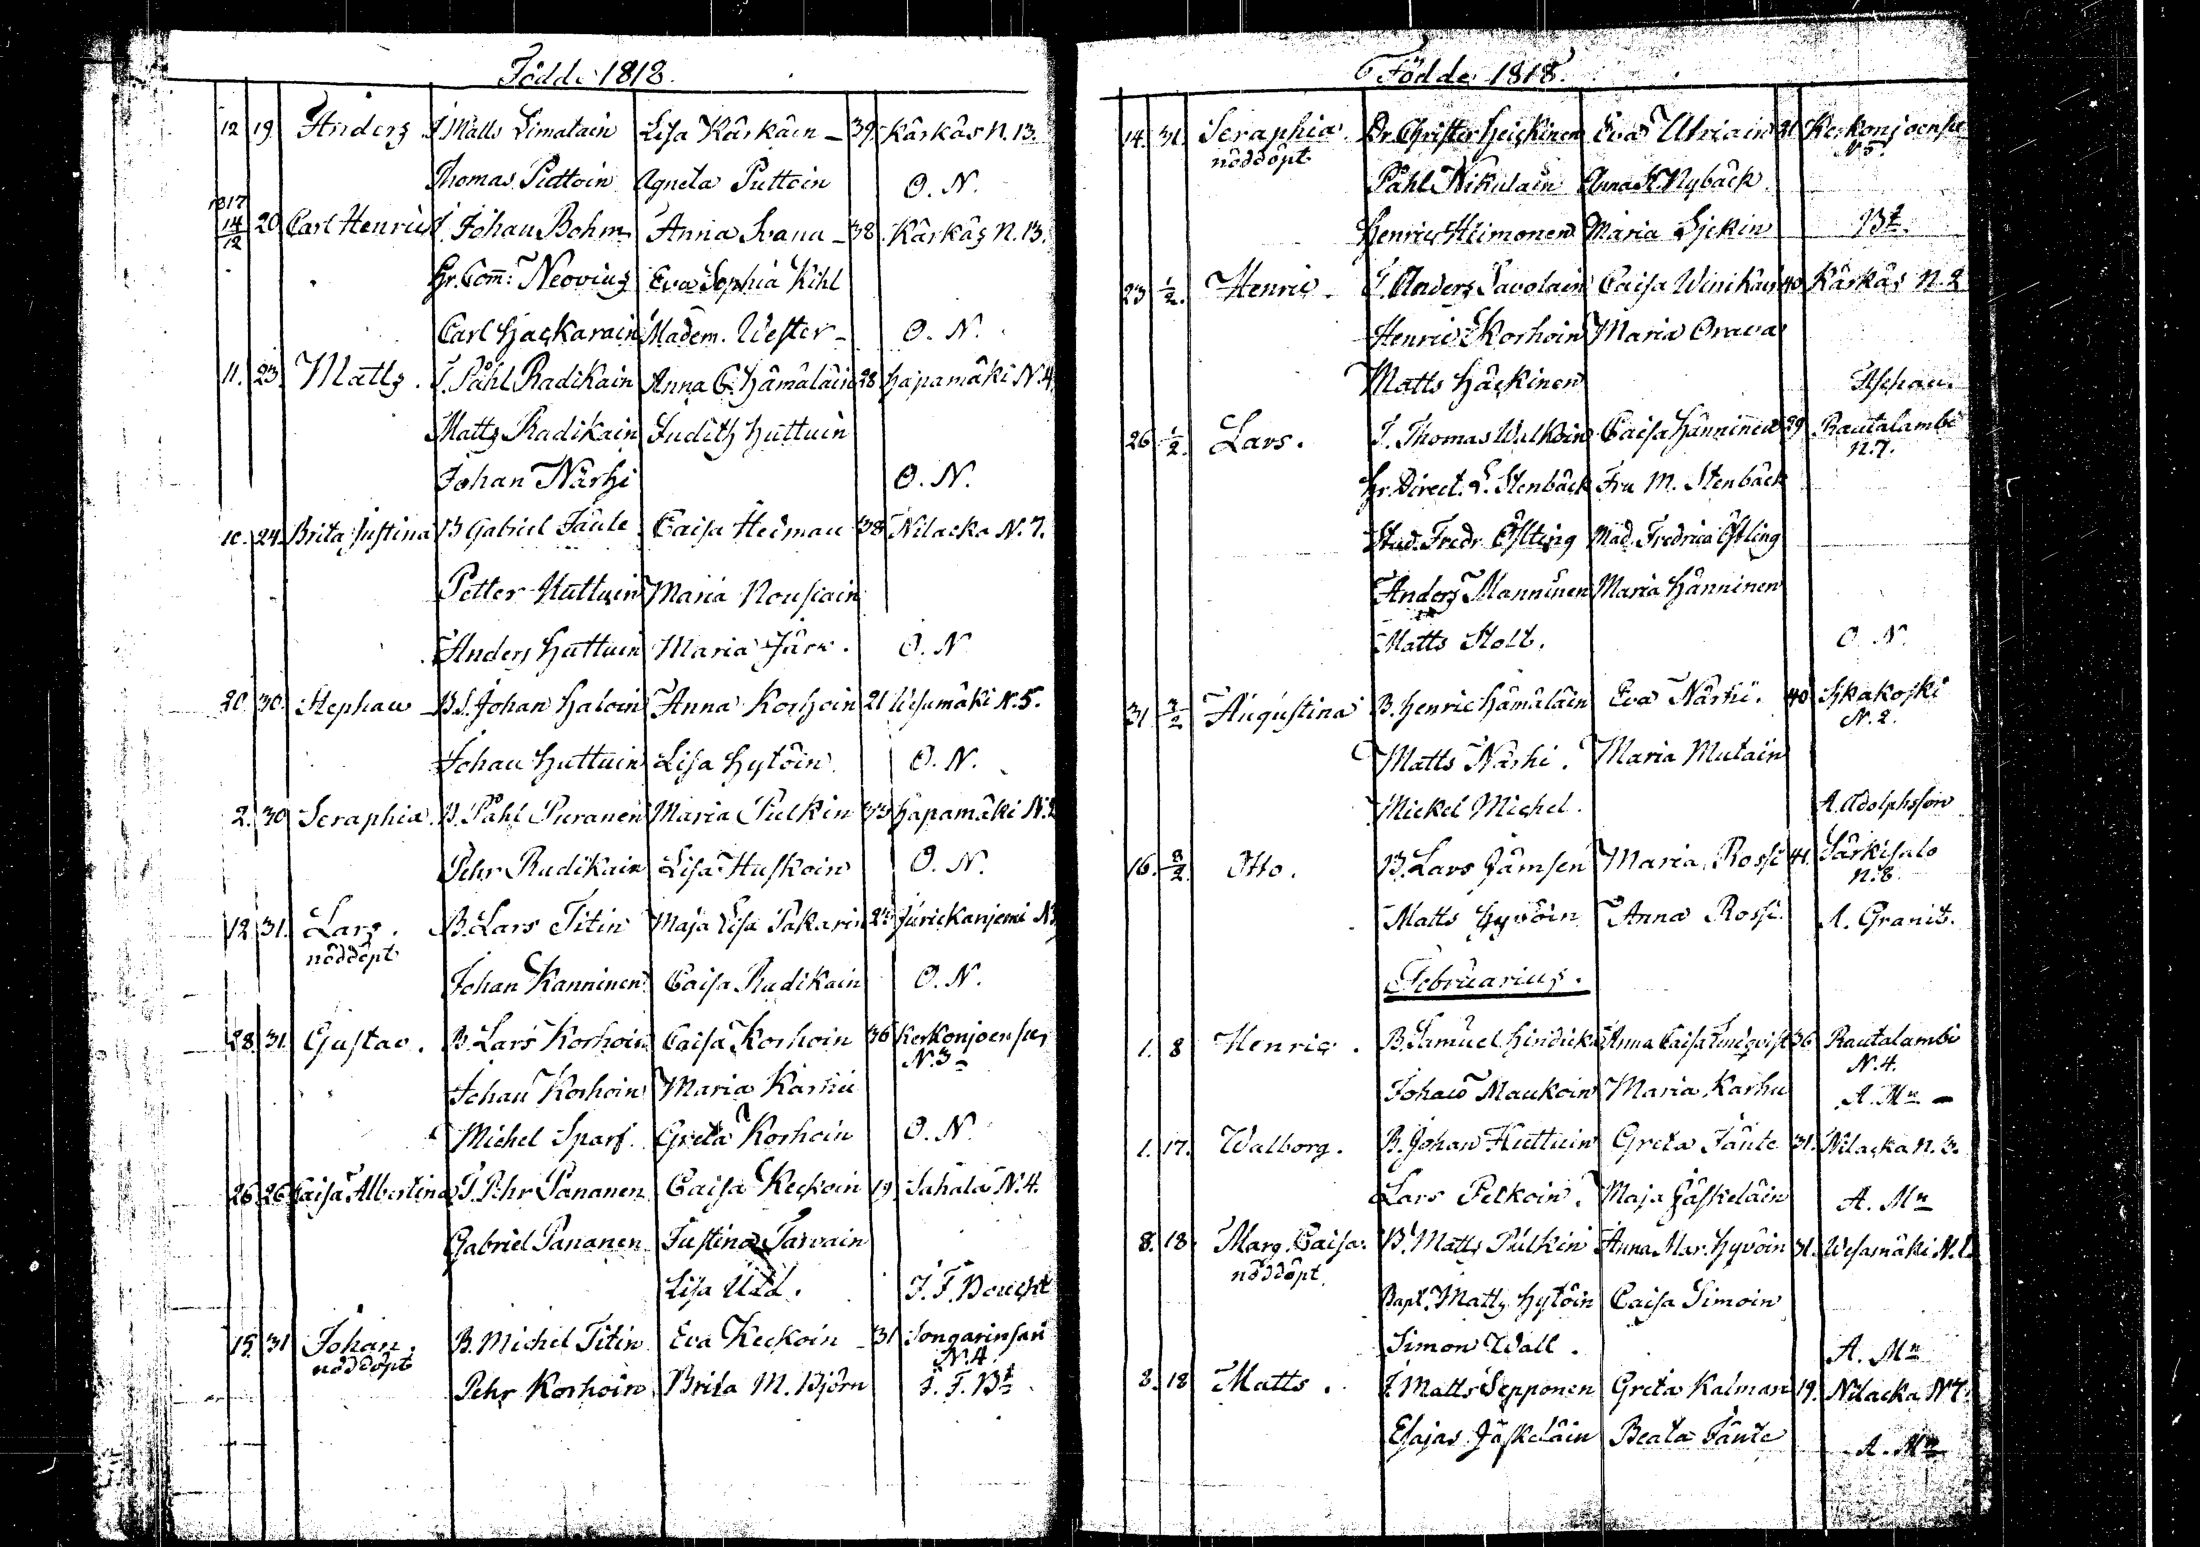 Födde 1818.
12 19 Anders I. Matts Limatain Lisa Kärkäin - 39. Kärkäs N. 13.
Thomas Puttoin Agneta Puttoin O. N.
1817
14/12 20 Carl Henric I. Johan Bohm Anna Svann - 38 Kärkäs N. 13.
Hr. Com: Neovius Eva Sophia Kihl
Carl Hackarain Madem. Wester - O. N.
11. 23. Matts. I. Påhl Radikain Anna C. Hämäläin 28 Hapamäki N. 4
Matts Radikain Judith Huttuin
Johan Närhi O. N.
10. 24. Brita Justina B Gabriel Jänte Caisa Heiman 38 Nilacka N. 7.
Petter Huttuin Maria Nousiain
Anders Huttuin Maria O. N
20. 30. Stephan B. S. Johan Haloin Anna Korhoin 21 Wesamäki N. 5.
Johan Huttuin Lisa Hytöin O. N.
2. 30 Seraphia. B. Påhl Puranen Maria Pulkin 33 Hapamäki N. 2
Pehr Radikain Lisa Huskoin O. N.
12 31. Lars. B. Lars Titin Maja Lisa Pakarin N.
nöddöpt
Johan Kanninen Caisa Radikain O. N.
28. 31. Gustav. B. Lars Korhoin Caisa Korhoin 36 Kerkonjoensuu
N. 3
Johan Korhoin Maria Kärhü
Michel Sparf. Greta Korhoin O. N.
26 26 Caisa Albertina I. Pehr Pananen Caisa Keckoin 19. Sahala N. 4.
Gabriel Pananen Justina Tarvain
Lisa Udd. J. F. Bergh
15. 31 Johan. B. Michel Titin Eva Keckoin - 31 Songarinsari
nöddöpt N. 4.
Pehr Korhoin Brita M. Björn J. F. Bt.
Födde 1818.
14. 31. Seraphia. Dr. Christer Heickinen Eva Utriain 21 Kerkonjoensuu
nöddöpt N. 5.
Påhl Nikulain Anna St. Nybäck
Henric Hiimonen Maria Bt.
23 1/2. Henric. I. Anders Savolain Caisa Winikain 40 Kärkäs N. 2
Henric Korhoin Maria Orava
Matts Häckinen
26 1/2. Lars. I. Thomas Walkoin Caisa Hänninen 29 Rautalambi
N. 7.
Hr. Direct. L. Stenbäck Fru M. Stenbäck
Stud. Fredr. Östling Mad. Fredrica Östling
Anders Manninen Maria Hänninen
Matts Stolt. O. N.
31. 2/2 Augustina B. Henric Hämäläin Eva Närhi. 40
N. 2.
Matts Närhi. Maria Mutain
Mickel Michel. A. Adolphsson
16. 2/2. Otto. B. Lars Jämsen Maria Rossi 41. Särkisalo
N. 8.
Matts Hyvöin Anna Rossi. A. Granit.
Februarius.
1. 8 Henric. B. Samuel Hindrick Anna Caisa Lindqvist 36 Rautalambi
N. 4.
Johan Maukoin Maria Karhu A. Mn -
1. 17. Walborg. B. Johan Huttuin Greta Jänte 31. Nilacka N. 3.
Lars Pelkoin. Maja Jäskeläin A. Mn
8. 18 Marg. Caisa. B. Matts Pulkin Anna Mar. Hyvöin 31. Wesamäki N. 1.
nöddöpt.
Bapt. Matts Hytöin Caisa Simoin
Simon Wall. A. Mn
8. 18 Matts. I. Matts Sepponen Greta Kalman 19. Nilacka N 7.
Esajas Jäskeläin Beata Jänte A. Mn